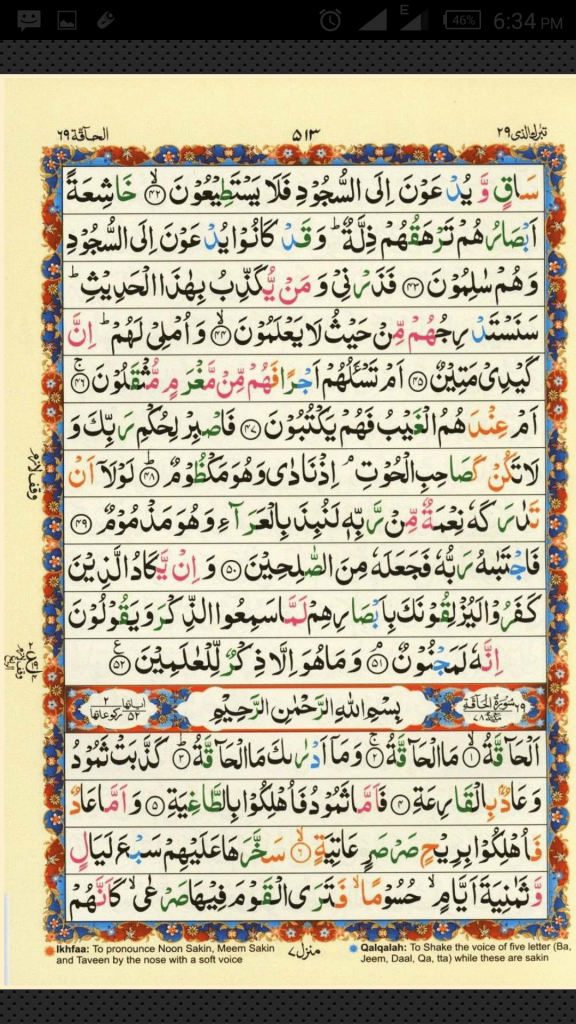 E 46% 6:34 PM
الحاقة ٦٩ ٥١٣ تبٰرك الذى ٢٩
سَاقٍ وَّ يُدْعَوْنَ اِلَى السُّجُوْدِ فَلَا يَسْتَطِيْعُوْنَ ۙ‏﴿۴۲﴾ خَاشِعَةً
اَبْصَارُهُمْ تَرْهَقُهُمْ ذِلَّةٌ ؕ وَ قَدْ كَانُوْا يُدْعَوْنَ اِلَى السُّجُوْدِ
وَهُمْ سٰلِمُوْنَ ﴿۴۳﴾ فَذَرْنِىْ وَ مَنْ يُّكَذِّبُ بِهٰذَا الْحَدِيْثِ ؕ
سَنَسْتَدْرِجُهُمْ مِّنْ حَيْثُ لَا يَعْلَمُوْنَ ۙ﴿۴۴﴾ وَ اُمْلِىْ لَهُمْ ؕ اِنَّ
كَيْدِىْ مَتِيْنٌ ﴿۴۵﴾ اَمْ تَسْـَٔلُهُمْ اَجْرًا فَهُمْ مِّنْ مَّغْرَمٍ مُّثْقَلُوْنَ ۚ﴿۴۶﴾
اَمْ عِنْدَهُمُ الْغَيْبُ فَهُمْ يَكْتُبُوْنَ ﴿۴۷﴾ فَاصْبِرْ لِحُكْمِ رَبِّكَ وَ
لَا تَكُنْ كَصَاحِبِ الْحُوْتِ ۘ اِذْ نَادٰى وَهُوَ مَكْظُوْمٌ ؕ﴿۴۸﴾ لَوْلَاۤ اَنْ
تَدٰرَكَهٗ نِعْمَةٌ مِّنْ رَّبِّهٖ لَنُبِذَ بِالْعَرَآءِ وَهُوَ مَذْمُوْمٌ ﴿۴۹﴾
فَاجْتَبٰىهُ رَبُّهٗ فَجَعَلَهٗ مِنَ الصّٰلِحِيْنَ ﴿۵۰﴾ وَ اِنْ يَّكَادُ الَّذِيْنَ
كَفَرُوْا لَيُزْلِقُوْنَكَ بِاَبْصَارِهِمْ لَمَّا سَمِعُوا الذِّكْرَ وَ يَقُوْلُوْنَ
اِنَّهٗ لَمَجْنُوْنٌ ۘ﴿۵۱﴾ وَ مَا هُوَ اِلَّا ذِكْرٌ لِّلْعٰلَمِيْنَ ﴿۵۲﴾
وقف لازم
٦٩ سُوْرَةُ الْحَآقَّةِ مَكِّيَّةٌ ٧٨ بِسْمِ اللّٰهِ الرَّحْمٰنِ الرَّحِيْمِ اٰیاتها ٥٢ رکوعاتها ٢
اَلْحَآقَّةُ ۙ﴿۱﴾ مَا الْحَآقَّةُ ۚ﴿۲﴾ وَ مَاۤ اَدْرٰىكَ مَا الْحَآقَّةُ ؕ﴿۳﴾ كَذَّبَتْ ثَمُوْدُ
وَ عَادٌۢ بِالْقَارِعَةِ ﴿۴﴾ فَاَمَّا ثَمُوْدُ فَاُهْلِكُوْا بِالطَّاغِيَةِ ﴿۵﴾ وَ اَمَّا عَادٌ
فَاُهْلِكُوْا بِرِيْحٍ صَرْصَرٍ عَاتِيَةٍ ۙ﴿۶﴾ سَخَّرَهَا عَلَيْهِمْ سَبْعَ لَيَالٍ
وَّ ثَمٰنِيَةَ اَيَّامٍ ۙ حُسُوْمًا ۙ فَتَرَى الْقَوْمَ فِيْهَا صَرْعٰى ۙ كَاَنَّهُمْ
Ikhfaa: To pronounce Noon Sakin, Meem Sakin
and Taveen by the nose with a soft voice
منزل ٧
Qalqalah: To Shake the voice of five letter (Ba,
Jeem, Daal, Qa, tta) while these are sakin